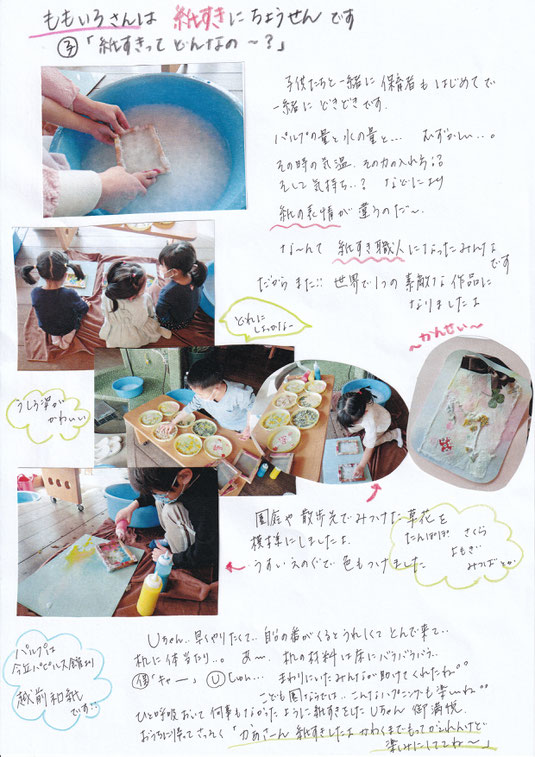 ももいろさんは 紙すきにちょうせんです
子「紙すきって どんなの～?」
子供たちと一緒に 保育者も はじめてで
一緒に どきどきです.
パルプの量と水の量と... むずかしい..。
その時の気温. その力の入れ方
そして気持ち..? などにより
紙の表情が 違うのだ～.
な～んて 紙すき職人になったみんな
です
だから また!! 世界で1つの 素敵な 作品に
なりましたよ
どれに しよっかな～
～かんせい～
うしろ姿が
かわいい
園庭や 散歩先でみつけた 草花を
模様にしましたよ
うすいえのぐで 色もつけました
たんぽぽ さくら
よもぎ
みつばとか
パルプは
今立パピルス館より
越前和紙
です
Uちゃん.. 早くやりたくて.. 自分の番がくるとうれしくて とんで来て..
机に 体当たり..。 あ～. 机の材料は床にバラバラバラ..
「キャー」 U しゅん... まわりにいたみんなが助けてくれたね
こども園ならでは.. こんなハプニングも 楽しいね
ひと呼吸おいて 何事もなかったように紙すきをしたUちゃん 御満悦.
おうちに帰って さっそく「かあさーん 紙すきしたよ かわくまでもってかえれんけど
楽しみにしててね～」